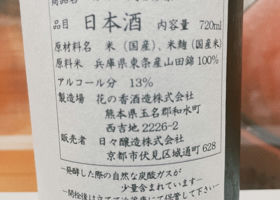 品目 日本酒 内容量 720ml
原材料名 米(国産)、米麹(国産米)
原料米 兵庫県東条産山田錦100%
アルコール分 13%
製造場 花の香酒造株式会社
熊本県玉名郡和水町
西吉地2226-2
販売者 日々醸造株式会社
京都市伏見区城通町628
―発酵した際の自然な炭酸ガスが
少量含まれています―